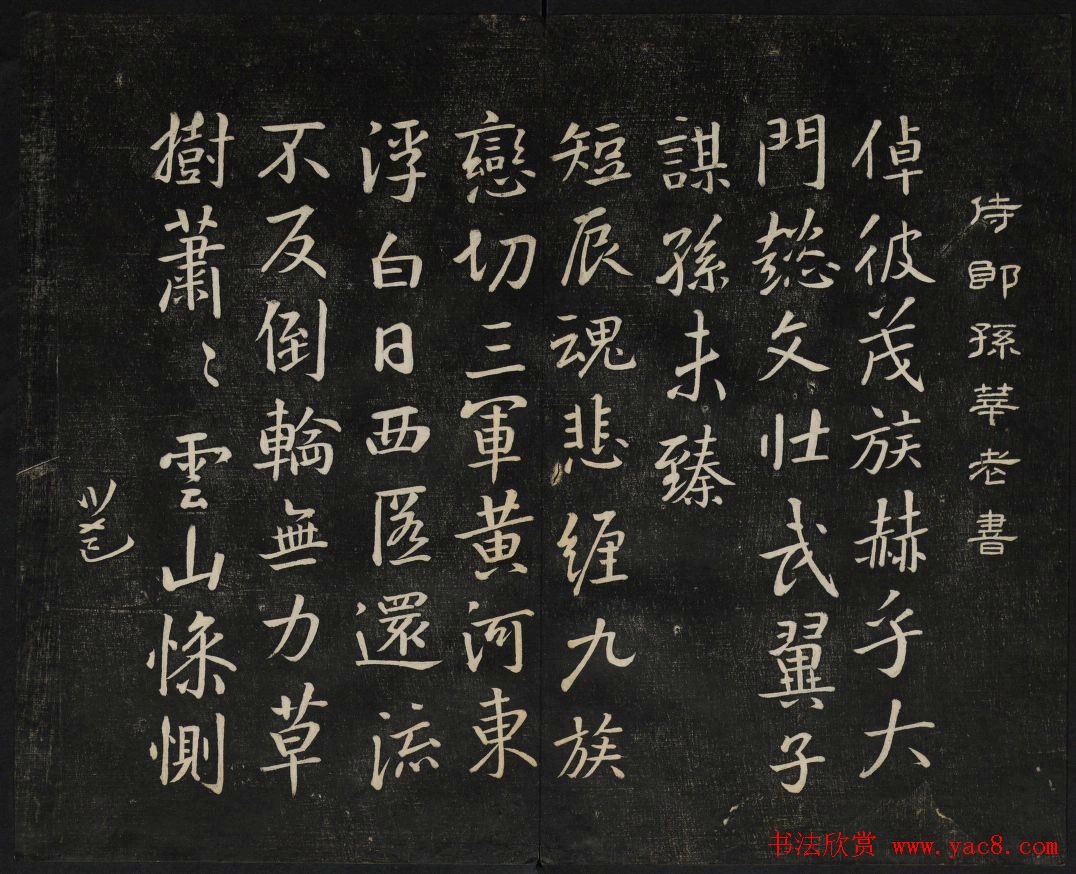 侍郎孫莘老書
倬彼茂族赫乎大
門懿文壮武翼子
謀孫未臻
短辰魂悲纏九族
戀切三軍黃河東
浮白日西匿還流
不反倒輪無力草
樹蕭〻雲山慘惻
书法欣赏 www.yac8.com